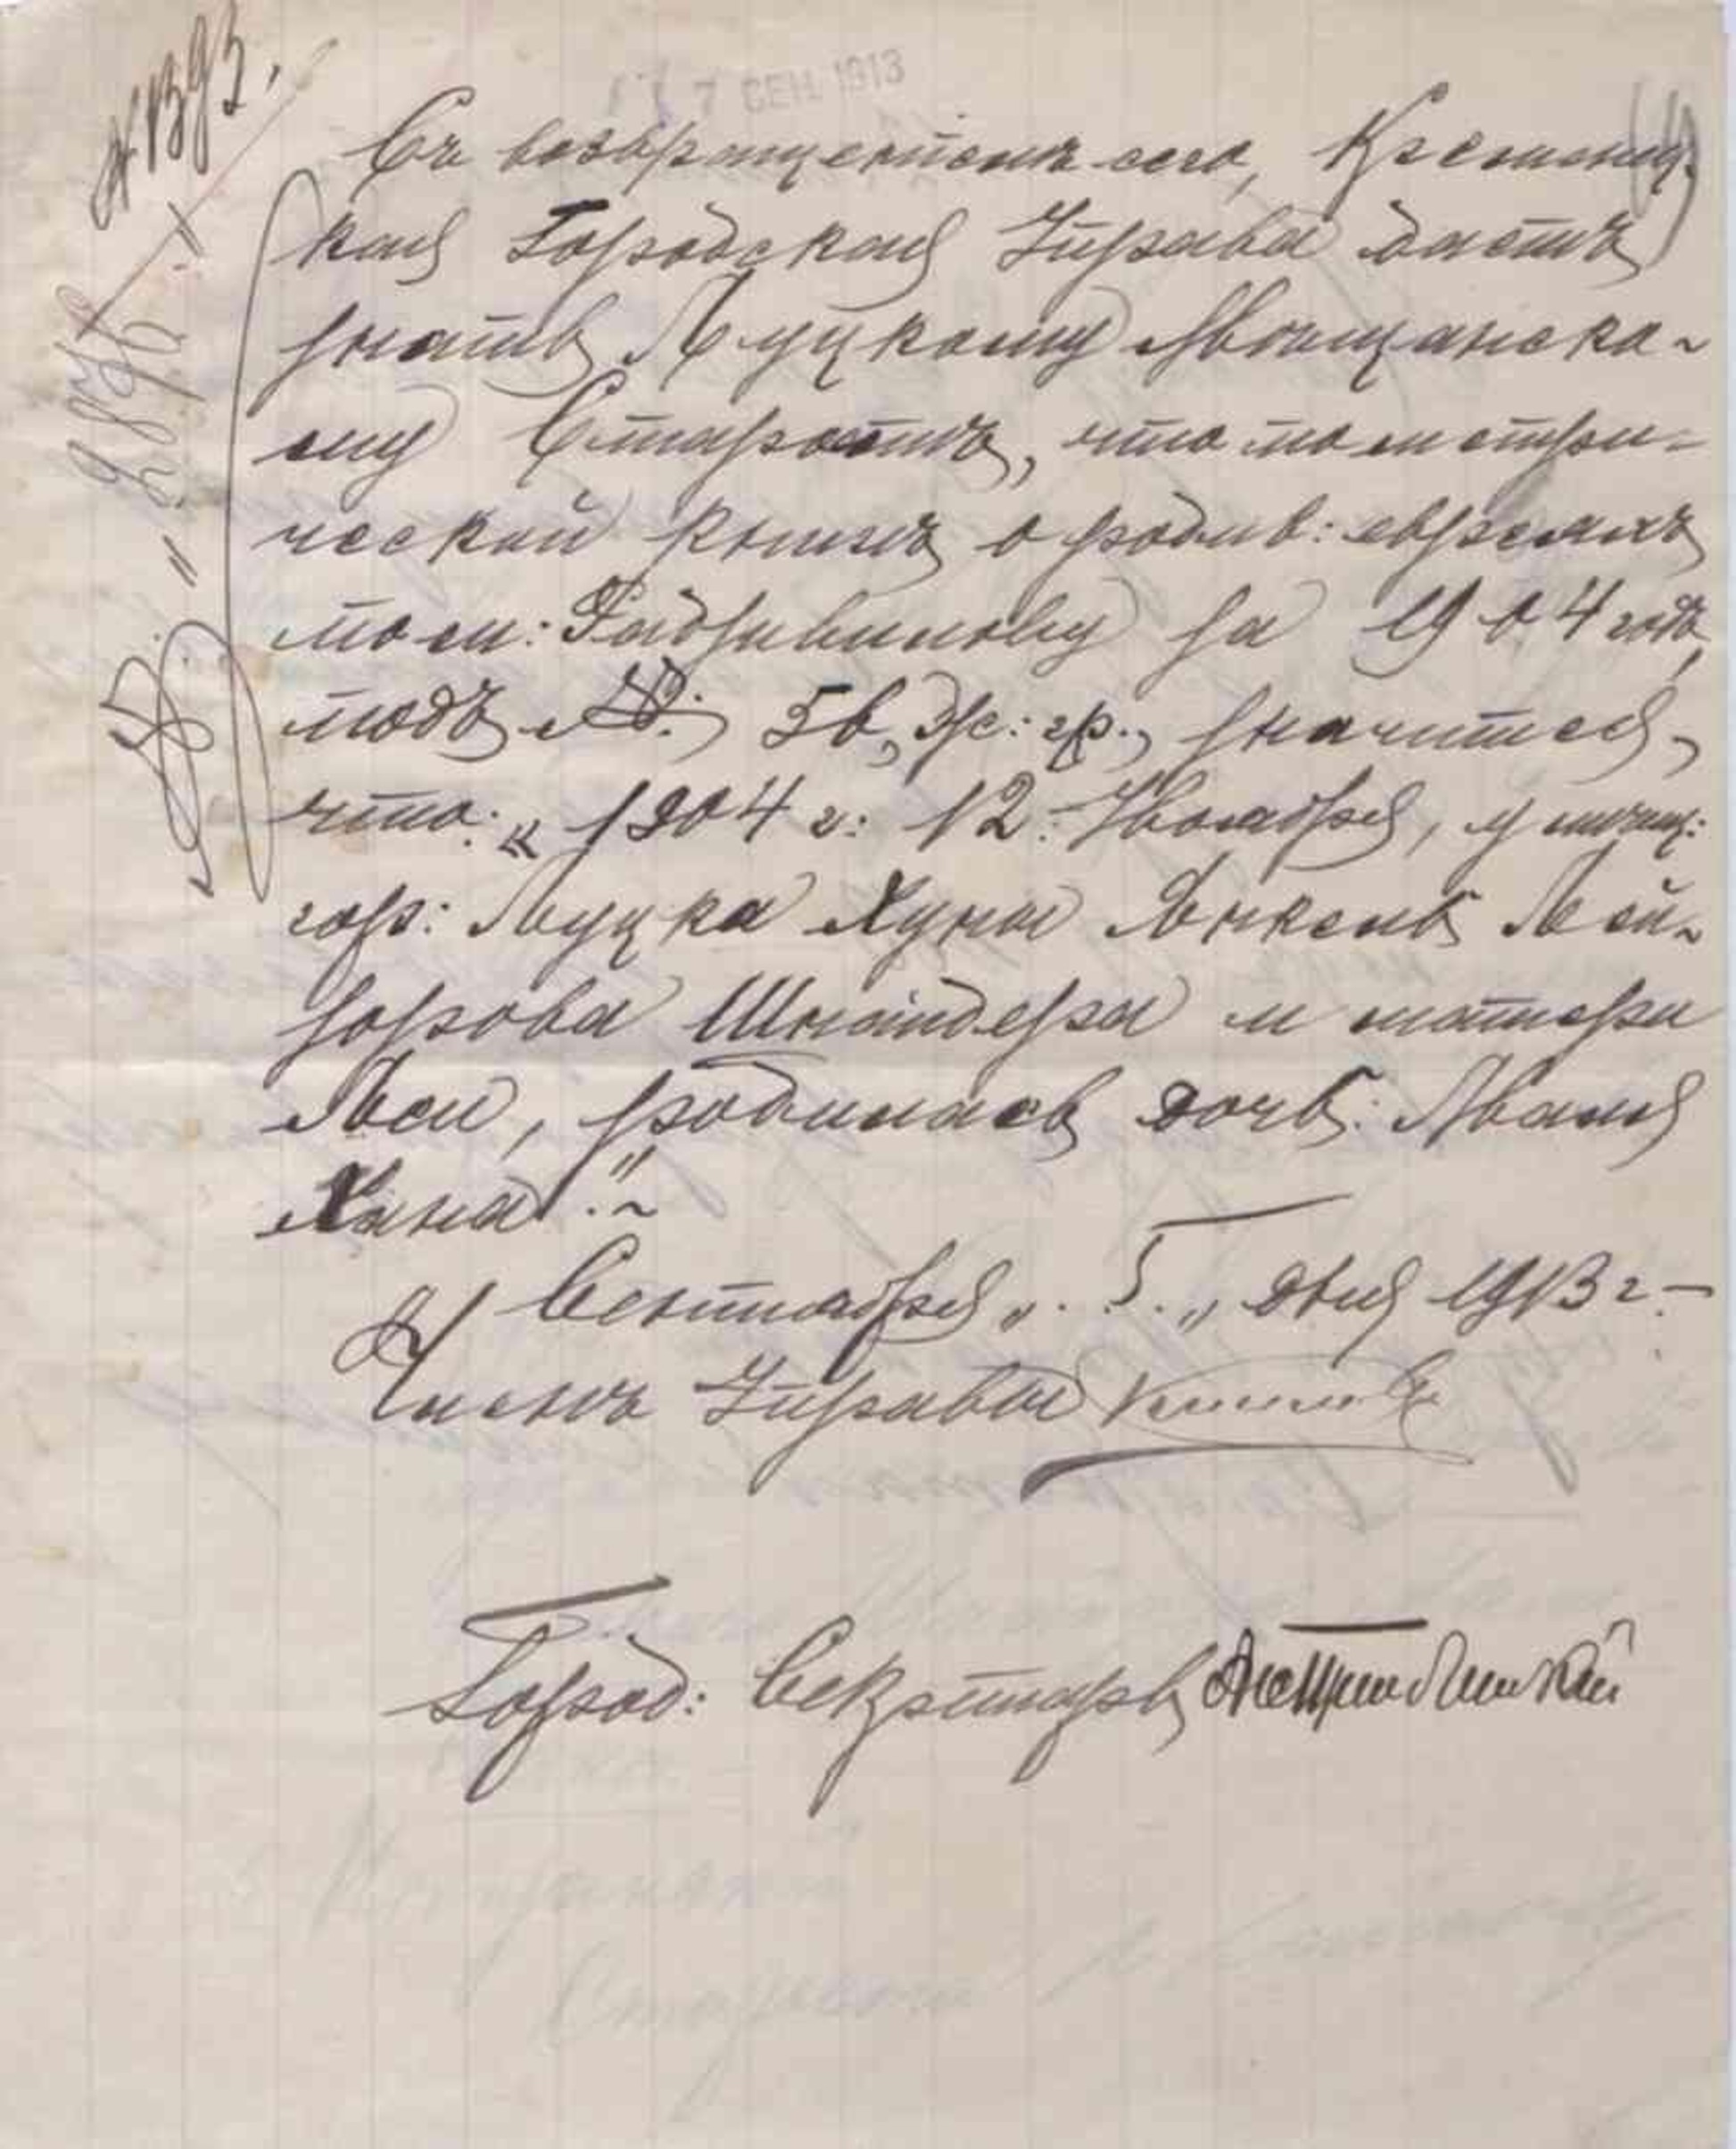 7 СЕН. 1913
Съ возвращеніемъ сего, Кременец-
кая Городская Управа даетъ
знать Луцкому Мѣщанско-
му Старостѣ, что по метри-
ческой книгѣ о родив: евреяхъ
по м: Радзивилову за 1904 годъ,
подъ №: 56, ж: гр., значится,
что: "1904 г: 12 Ноября, у мѣщ:
гор: Луцка Хуны Янкель Лей-
зорова Шнайдера и матери
Леи, родилась дочь:
Хана".~
Сентября "5" дня 1913 г.–
Членъ Управы
Город: Секретарь